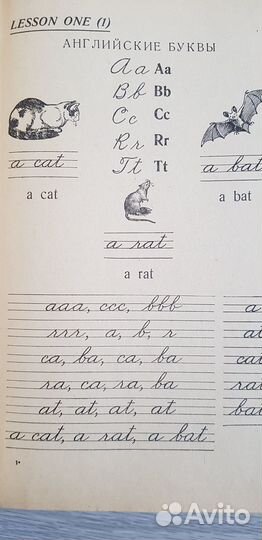 LESSON ONE (1)
АНГЛИЙСКИЕ БУКВЫ
Aa Aa
Bb Bb
Cc Cc
Rr Rr
Tt Tt
a cat
a cat
a bat
a bat
a rat
a rat
aaa, ccc, bbb
rrr, a, b, r
ca, ba, ca, ba
ra, ca, ra, ba
at, at, at, at
a cat, a rat, a bat
a
at
cat
rat
bat
1*
Avito